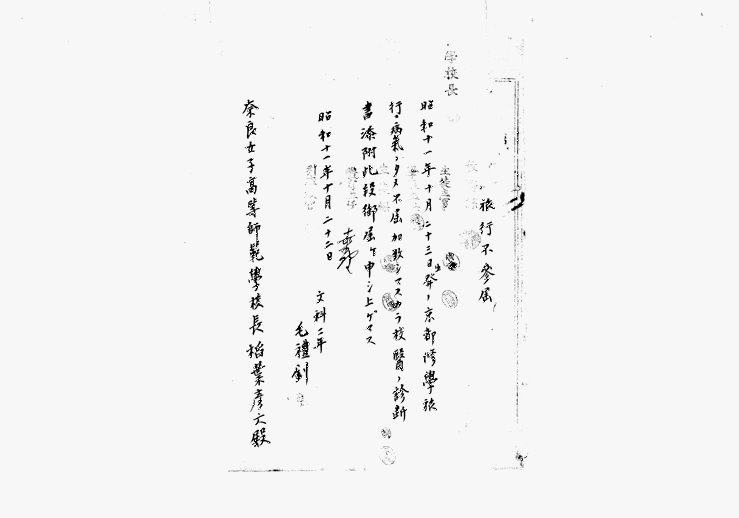 學校長
旅行不參屆
昭和十一年十月二十三日發ノ京都修學旅
行ハ病氣ノタメ不參加致シマスカラ校醫ノ診斷
書添附此段御屆ケ申シ上ゲマス
昭和十一年十月二十二日
文科二年
毛禮釗
奈良女子高等師範學校長 稻葉彦六殿